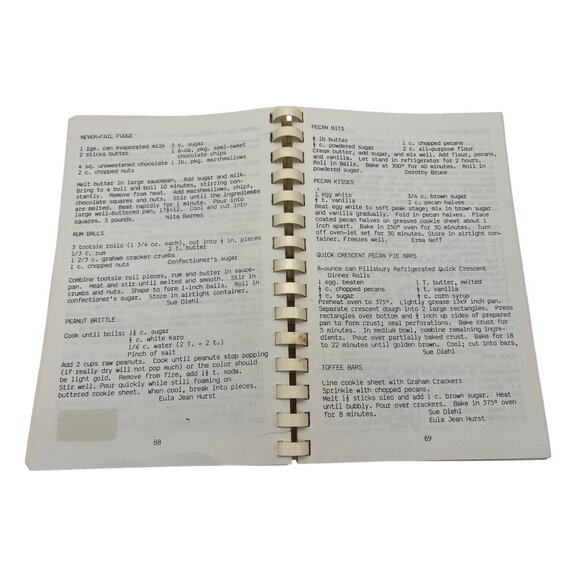 NEVER-FAIL FUDGE
1 lge. can evaporated milk 5 c. sugar
2 sticks butter 1 6-oz. pkg. semi-sweet
chocolate chips
4 sq. unsweetened chocolate 1 lb. pkg. marshmallows
2 c. chopped nuts
Melt butter in large saucepan. Add sugar and milk.
Bring to a boil and boil 10 minutes, stirring con-
stantly. Remove from heat. Add marshmallows, chips,
chocolate squares and nuts. Stir until the ingredients
are melted. Beat rapidly for 1 minute. Pour into
large well-buttered pan, Cool and cut into
squares. 5 pounds. Nita Barnes
RUM BALLS
3 tootsie rolls (1 3/4 oz. each), cut into ½ in. pieces
1/3 c. rum 2 T. butter
1 2/3 c. graham cracker crumbs
1 c. chopped nuts Confectioner's sugar
Combine tootsie roll pieces, rum and butter in sauce-
pan. Heat and stir until melted and smooth. Stir in
crumbs and nuts. Shape to form 1-inch balls. Roll in
confectioner's sugar. Store in airtight container.
Sue Diehl
PEANUT BRITTLE
Cook until boils: c. sugar
c. white Karo
1/6 c. water (2 T. + 2 t.)
Pinch of salt
Add 2 cups raw peanuts. Cook until peanuts stop popping
(if really dry will not pop much) or the color should
be light gold. Remove from fire, add t. soda.
Stir well. Pour quickly while still foaming on
buttered cookie sheet. When cool, break into pieces.
Eula Jean Hurst
88
PECAN BITS
lb butter 1 c. chopped pecans
c. powdered sugar 2 c. all-purpose flour
Cream butter, add sugar, and mix well. Add flour, pecans,
and vanilla. Let stand in refrigerator for 2 hours.
Roll in Balls. Bake at 300º for 40 minutes. Roll in
powdered sugar. Dorothy Bruce
PECAN KISSES
1 egg white 3/4 c. brown sugar
t. vanilla 2 c. pecan halves
Beat egg white to soft peak stage; mix in brown sugar
and vanilla gradually. Fold in pecan halves. Place
coated pecan halves on greased cookie sheet about 1
inch apart. Bake in 250º oven for 30 minutes. Turn
off oven-let set for 30 minutes. Store in airtight con-
tainer. Freezes well. Erma Neff
QUICK CRESCENT PECAN PIE BARS
8-ounce can Pillsbury Refrigerated Quick Crescent
Dinner Rolls
1 egg, beaten 1 T. butter, melted
c. chopped pecans t. vanilla
c. sugar c. corn syrup
Preheat oven to 375º. Lightly grease 13x9 inch pan.
Separate crescent dough into 2 large rectangles. Press
rectangles over bottom and inch up sides of prepared
pan to form crust; seal perforations. Bake crust for
5 minutes. In medium bowl, combine remaining ingre-
dients. Pour over partially baked crust. Bake for 18
to 22 minutes until golden brown. Cool; cut into bars.
Sue Diehl
TOFFEE BARS
Line cookie sheet with Graham Crackers
Sprinkle with chopped pecans.
Melt 1½ sticks oleo and add 1 c. brown sugar. Heat
until bubbly. Pour over crackers. Bake in 375º oven
for 8 minutes. Sue Diehl
Eula Jean Hurst
89